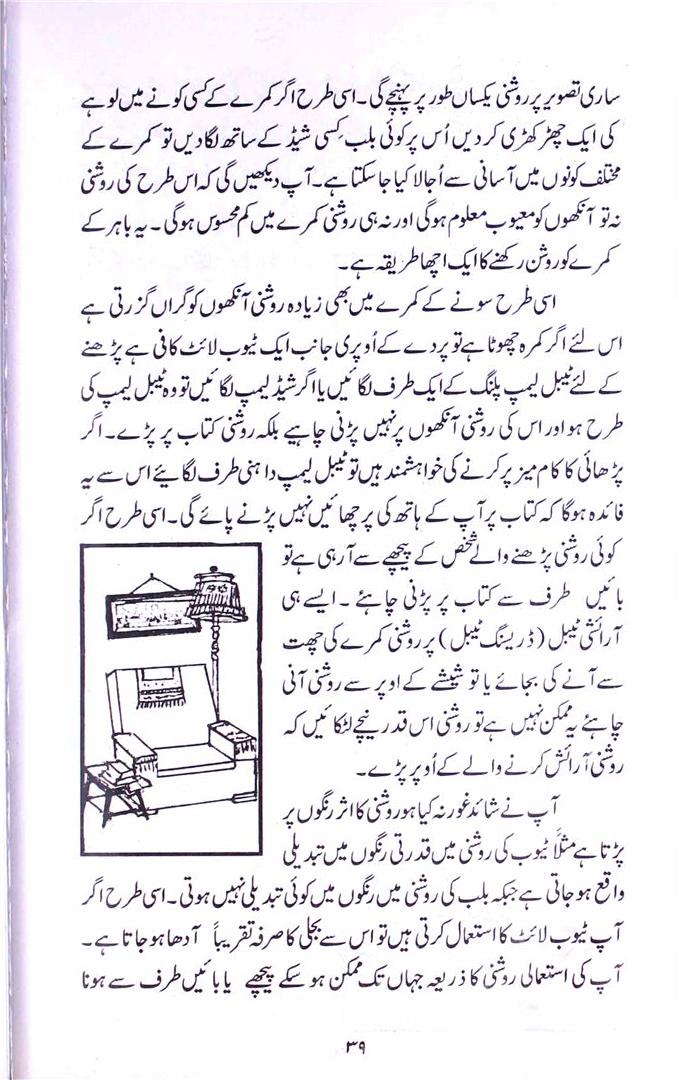 ساری تصویر پر روشنی یکساں طور پر پہنچے گی۔ اسی طرح اگر کمرے کے کسی کونے میں لوہے
کی ایک چھڑ کھڑی کر دیں اُس پر کوئی بلب کِسی شیڈ کے ساتھ لگا دیں تو کمرے کے
مختلف کونوں میں آسانی سے اُجالا کیا جا سکتا ہے۔ آپ دیکھیں گی کہ اس طرح کی روشنی
نہ تو آنکھوں کو معیوب معلوم ہوگی اور نہ ہی روشنی کمرے میں کم محسوس ہوگی۔ یہ باہر کے
کمرے کو روشن رکھنے کا ایک اچھا طریقہ ہے۔
اسی طرح سونے کے کمرے میں بھی زیادہ روشنی آنکھوں کو گراں گزرتی ہے
اس لئے اگر کمرہ چھوٹا ہے تو پردے کے اُوپری جانب ایک ٹیوب لائٹ کافی ہے پڑھنے
کے لئے ٹیبل لیمپ پلنگ کے ایک طرف لگائیں یا اگر شیڈ لیمپ لگائیں تو وہ ٹیبل لیمپ کی
طرح ہو اور اس کی روشنی آنکھوں پر نہیں پڑنی چاہیے بلکہ روشنی کتاب پر پڑے۔ اگر
پڑھائی کا کام میز پر کرنے کی خواہشمند ہیں تو ٹیبل لیمپ داہنی طرف لگائیے اس سے یہ
فائدہ ہوگا کہ کتاب پر آپ کے ہاتھ کی پرچھائیں نہیں پڑنے پائے گی۔ اسی طرح اگر
کوئی روشنی پڑھنے والے شخص کے پیچھے سے آ رہی ہے تو
بائیں طرف سے کتاب پر پڑنی چاہئے۔ ایسے ہی
آرائشی ٹیبل (ڈریسنگ ٹیبل) پر روشنی کمرے کی چھت
سے آنے کی بجائے یا تو شیشے کے اوپر سے روشنی آنی
چاہئے یہ ممکن نہیں ہے تو روشنی اس قدر نیچے لٹکائیں کہ
روشنی آرائش کرنے والے کے اُوپر پڑے۔
آپ نے شائد غور نہ کیا ہو روشنی کا اثر رنگوں پر
پڑتا ہے مثلاً ٹیوب کی روشنی میں قدرتی رنگوں میں تبدیلی
واقع ہو جاتی ہے جبکہ بلب کی روشنی میں رنگوں میں کوئی تبدیلی نہیں ہوتی۔ اسی طرح اگر
آپ ٹیوب لائٹ کا استعمال کرتی ہیں تو اس سے بجلی کا صرفہ تقریباً آدھا ہو جاتا ہے۔
آپ کی استعمالی روشنی کا ذریعہ جہاں تک ممکن ہو سکے پیچھے یا بائیں طرف سے ہونا
۳۹